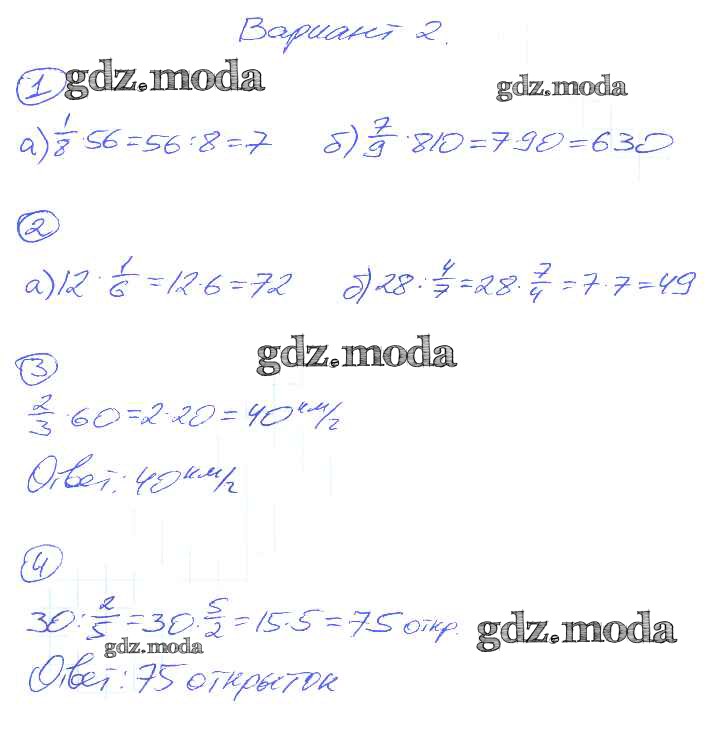 Вариант 2.
1 gdz.moda gdz.moda
а) 1/8 · 56 = 56 : 8 = 7 б) 7/9 · 810 = 7·90 = 630
2
а) 12 · 1/6 = 12·6 = 72 б) 28 : 4/7 = 28 · 7/4 = 7·7 = 49
gdz.moda
3
2/3 · 60 = 2·20 = 40 км/ч
Ответ: 40 км/ч
4
30 : 2/5 = 30 · 5/2 = 15·5 = 75 откр. gdz.moda
gdz.moda
Ответ: 75 открыток